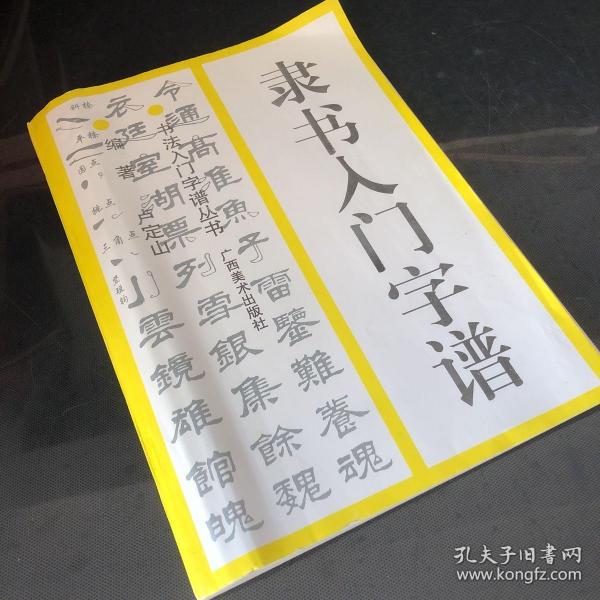 隶书入门字谱
书法入门字谱丛书
广西美术出版社
编著
卢定山
斜捺
平捺
圆点
挑点
三角点
竖短钩
令 衣
通 廷
高 室
雀 胡
鱼 票
子 列
雷 雪 雲
鑒 銀 鏡
難 集 雄
養 餘 館
魂 魏 魄
孔夫子旧书网
www.kongfz.com